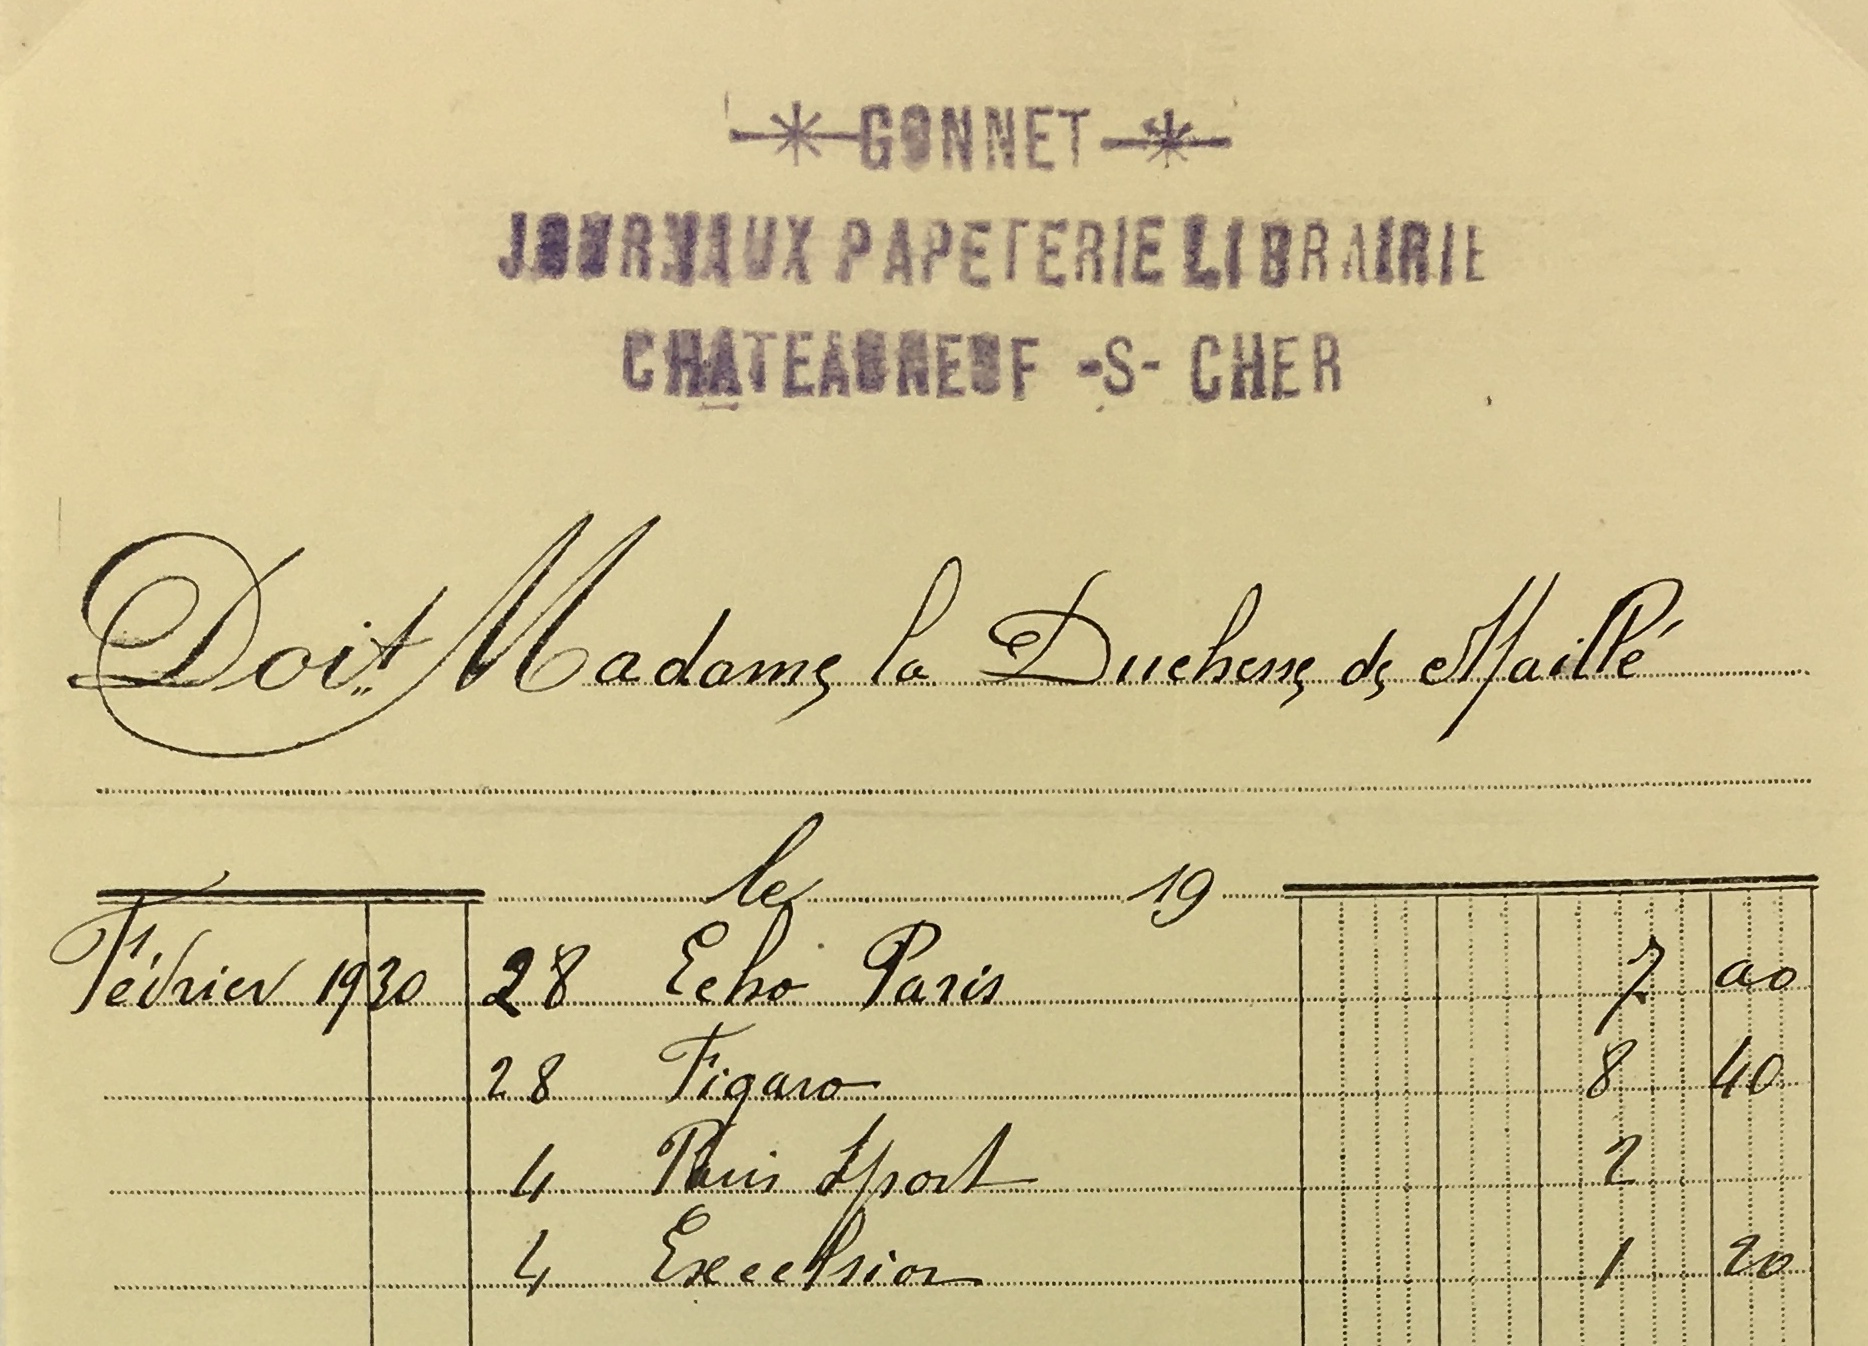 GONNET
JOURNAUX PAPETERIE LIBRAIRIE
CHATEAUNEUF -S- CHER
Doit Madame la Duchesse de Maillé
le 19
Février 1930 28 Echo Paris 7 00
28 Figaro 8 40
4 Paris Sport 2
4 Excelsior 1 20